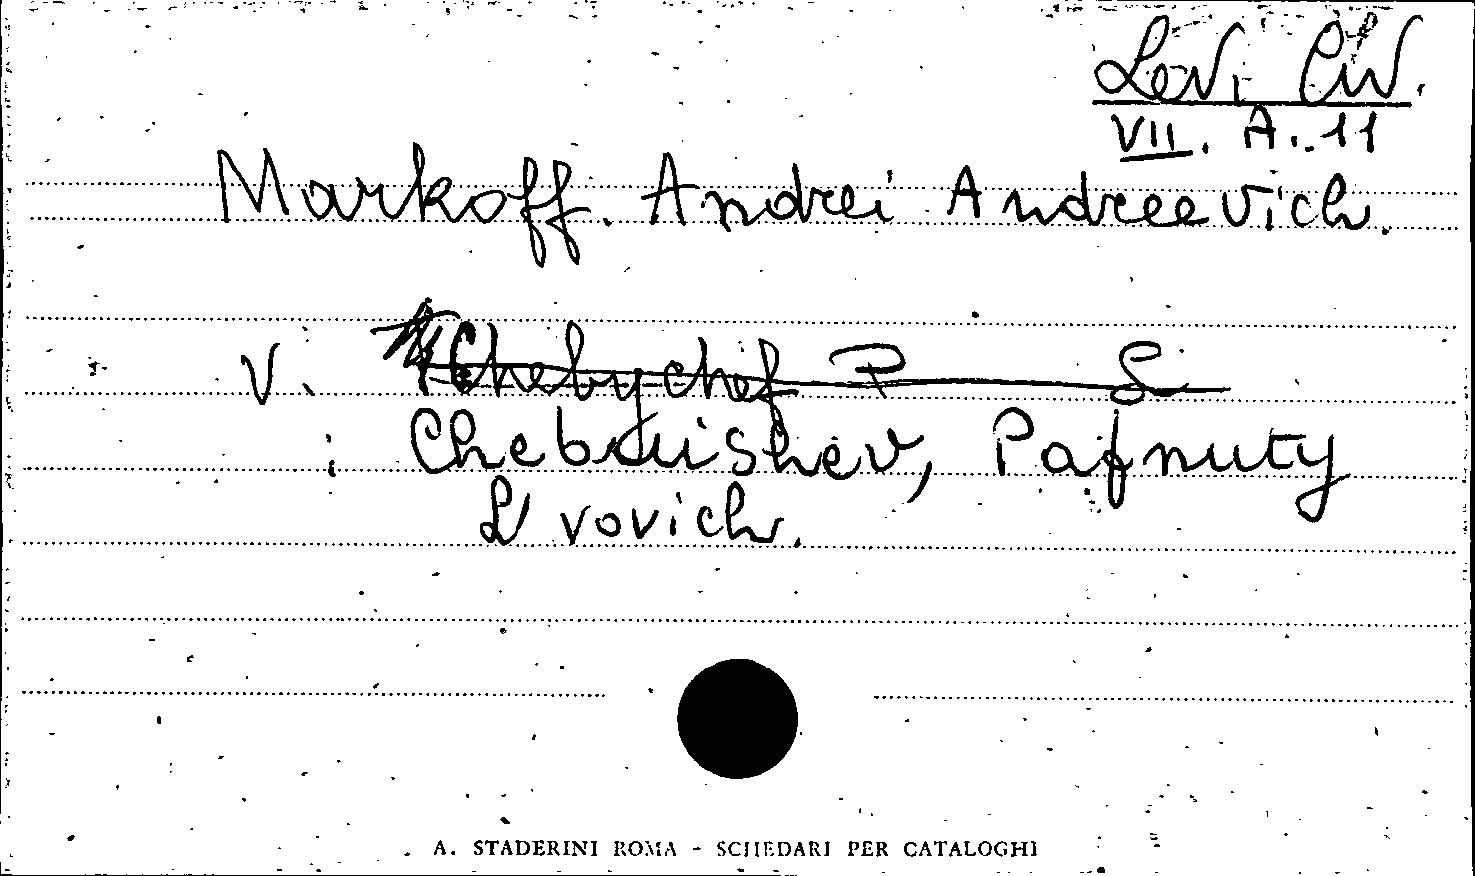 Levi Civ.
VII. A. 11
Markoff. Andrei Andreevich.
V. Chebychef P S
: Chebuishev, Pafnuty
L'vovich.
A. STADERINI ROMA - SCHEDARI PER CATALOGHI